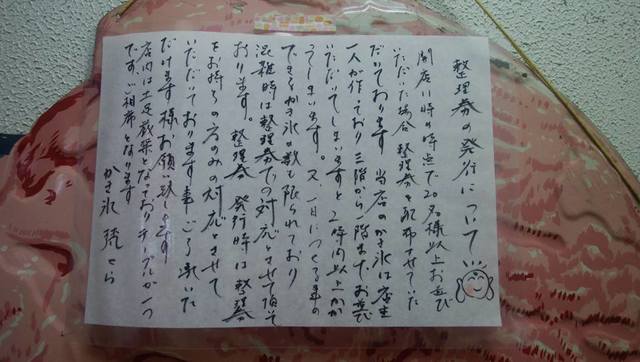 整理券の発行について
開店11時の時点で20名様以上お並び
いただいた場合 整理券を配布させていた
だいております 当店のかき氷は店主
一人が作っており 三階から一階までお並び
いただいてしまいますと 2時間以上かか
ってしまいます。又、一日につくる事の
できるかき氷の数も限られており
混雑時は整理券での対応とさせて頂いて
おります。整理券発行時は整理券
をお持ちの方のみの対応とさせて
いただいております事ご了承いた
だけます様お願い致します
店内は土足厳禁となっておりテーブルが一つ
です。ご相席となります
かき氷